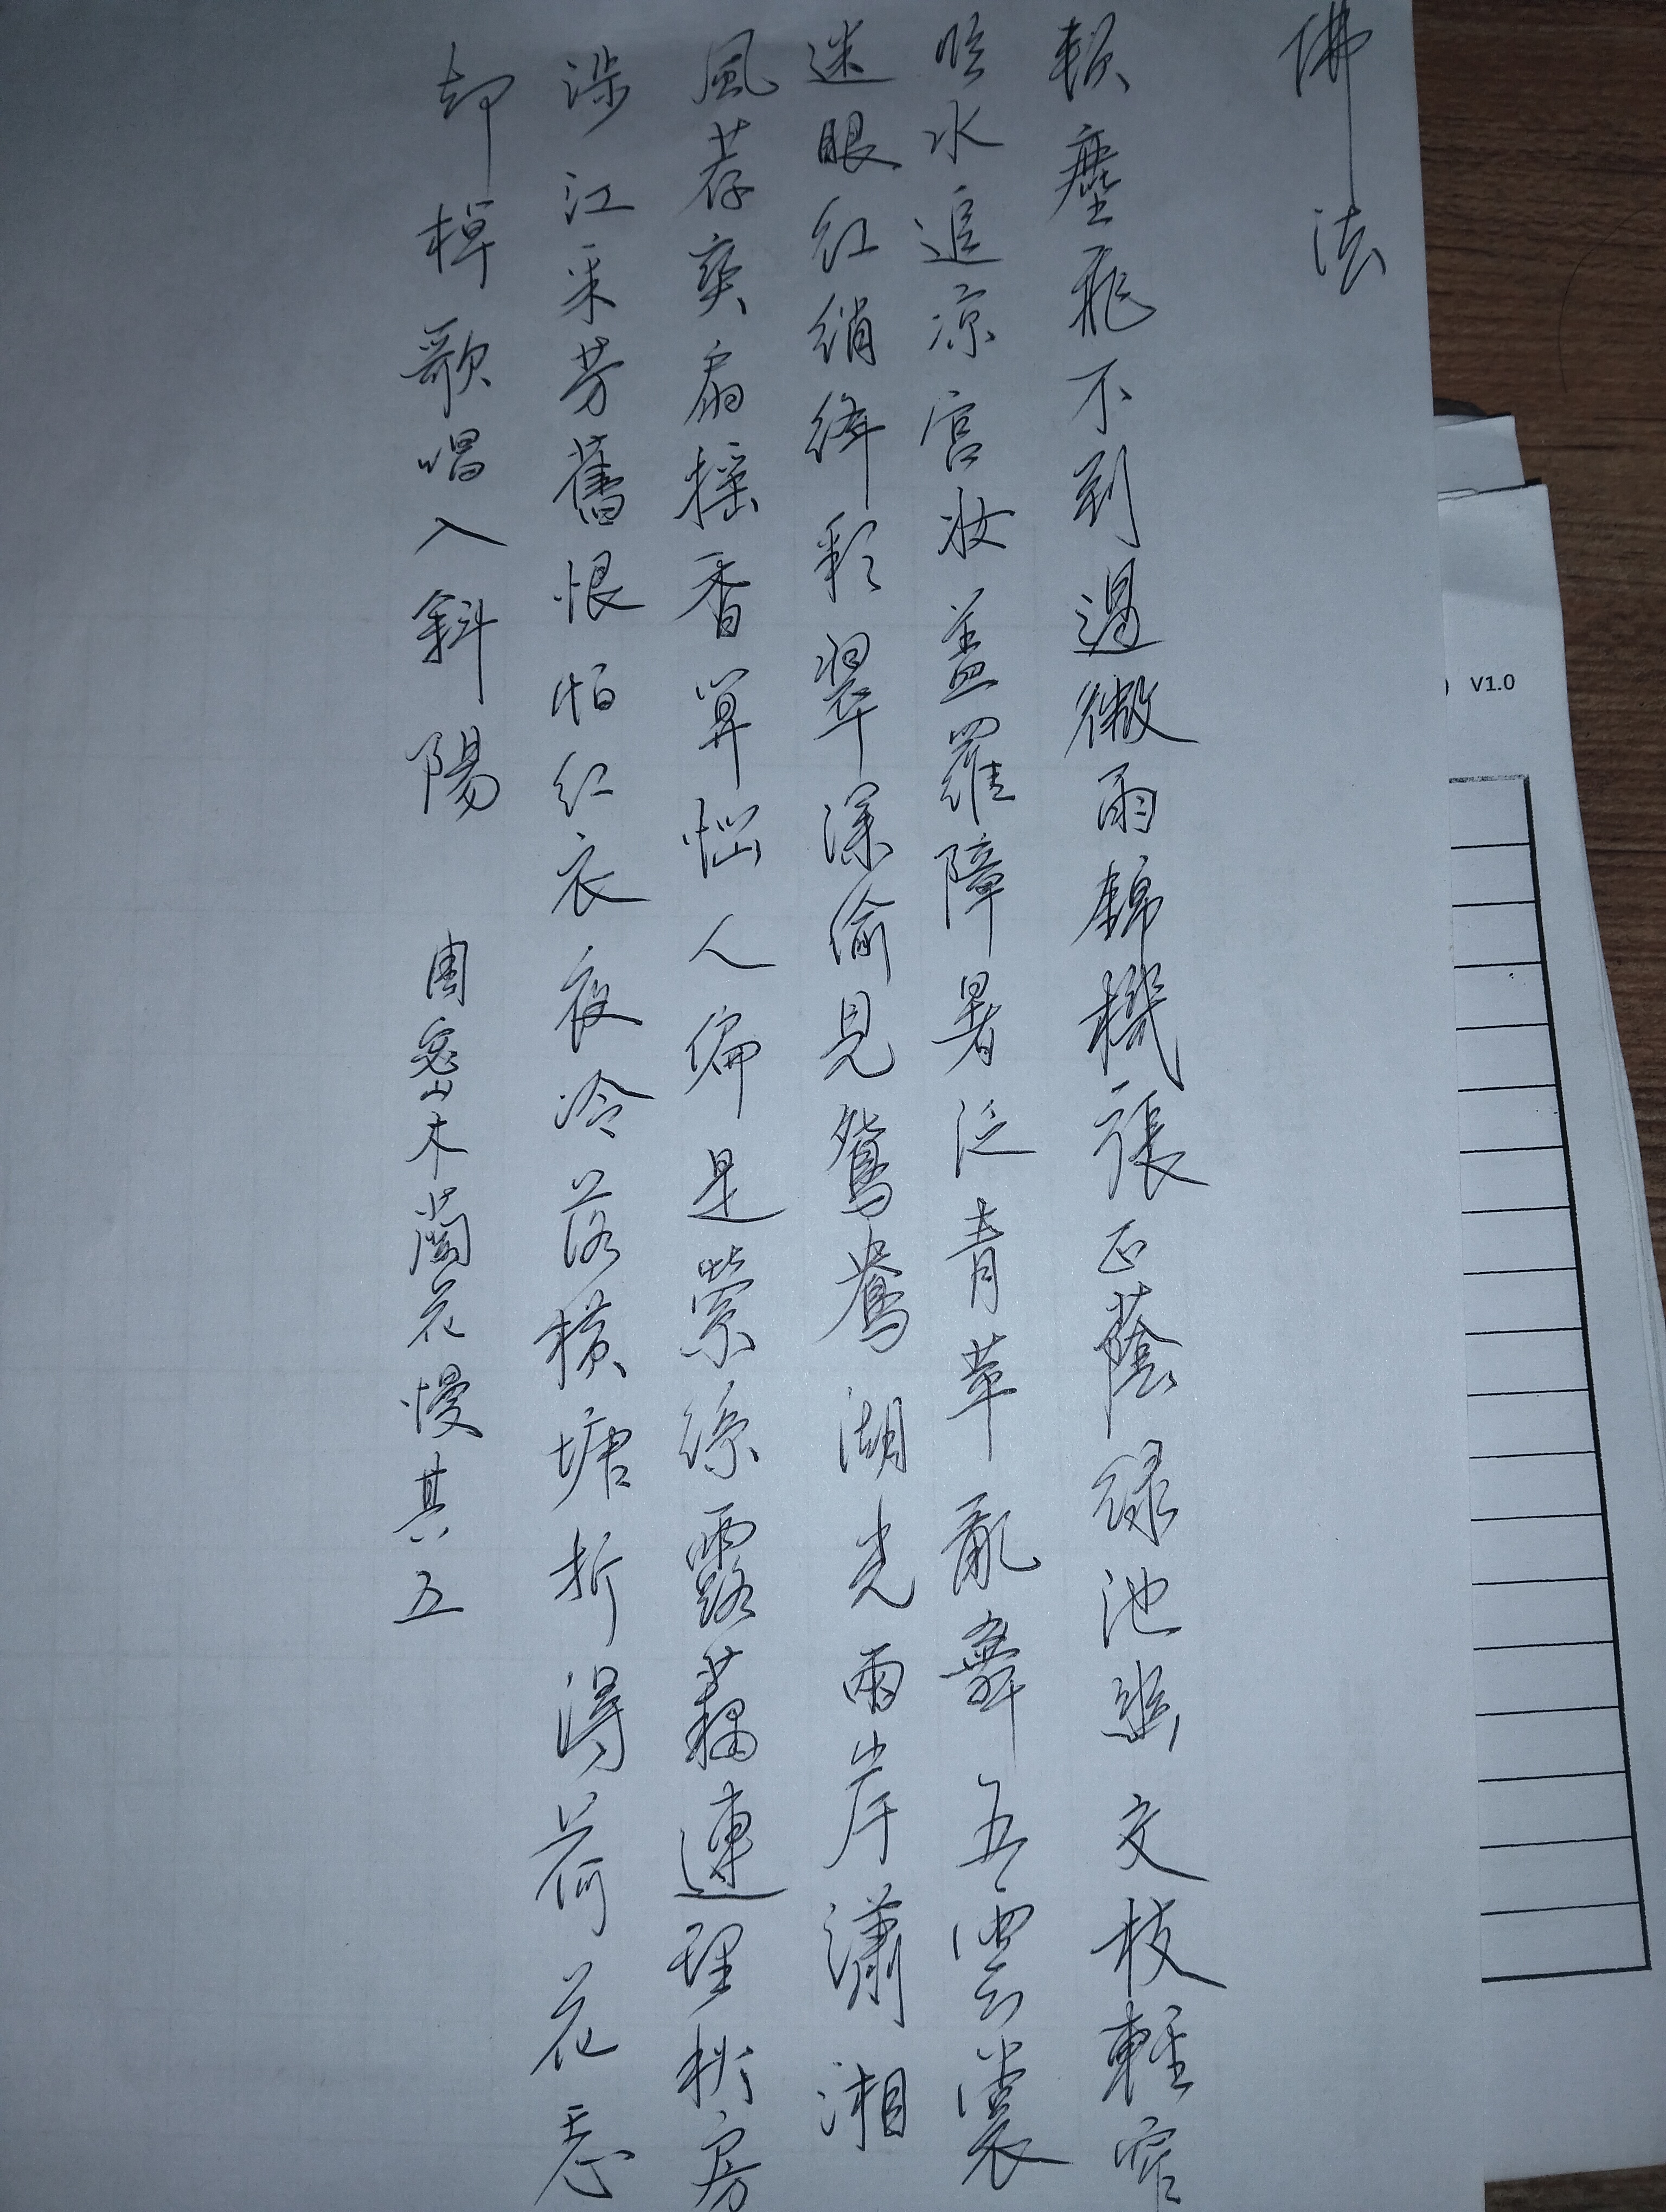 佛法
軟塵飛不到過微雨錦機張正蔭綠池幽交枝輕窄
臨水追凉宮妝蓋羅障暑泛青萍亂舞五雲裳
迷眼紅綃絳彩翠深偷見鴛鴦湖光兩岸瀟湘
風荐爽扇搖香算惱人偏是縈絲露藕連理秋房
涉江采芳舊恨怕紅衣夜冷落橫塘折得荷花忘
却棹歌唱入斜陽 周密木蘭花慢其五
V1.0